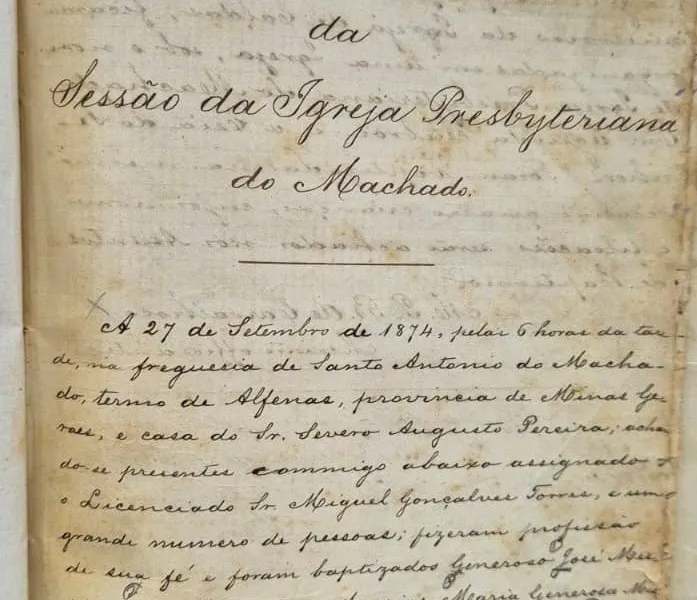 da
Sessão da Igreja Presbyteriana
do Machado.
A 27 de Setembro de 1874, pelas 6 horas da tar-
de, na freguesia de Santo Antonio do Macha-
do, termo de Alfenas, provincia de Minas Ge-
raes, e casa do Sr. Severo Augusto Pereira; achan
do-se presentes commigo abaixo assignado
o Licenciado Sr. Miguel Gonçalves Torres, e um
grande numero de pessoas; fizeram profissão
de sua fé e foram baptizados Generoso José
Maria Generosa